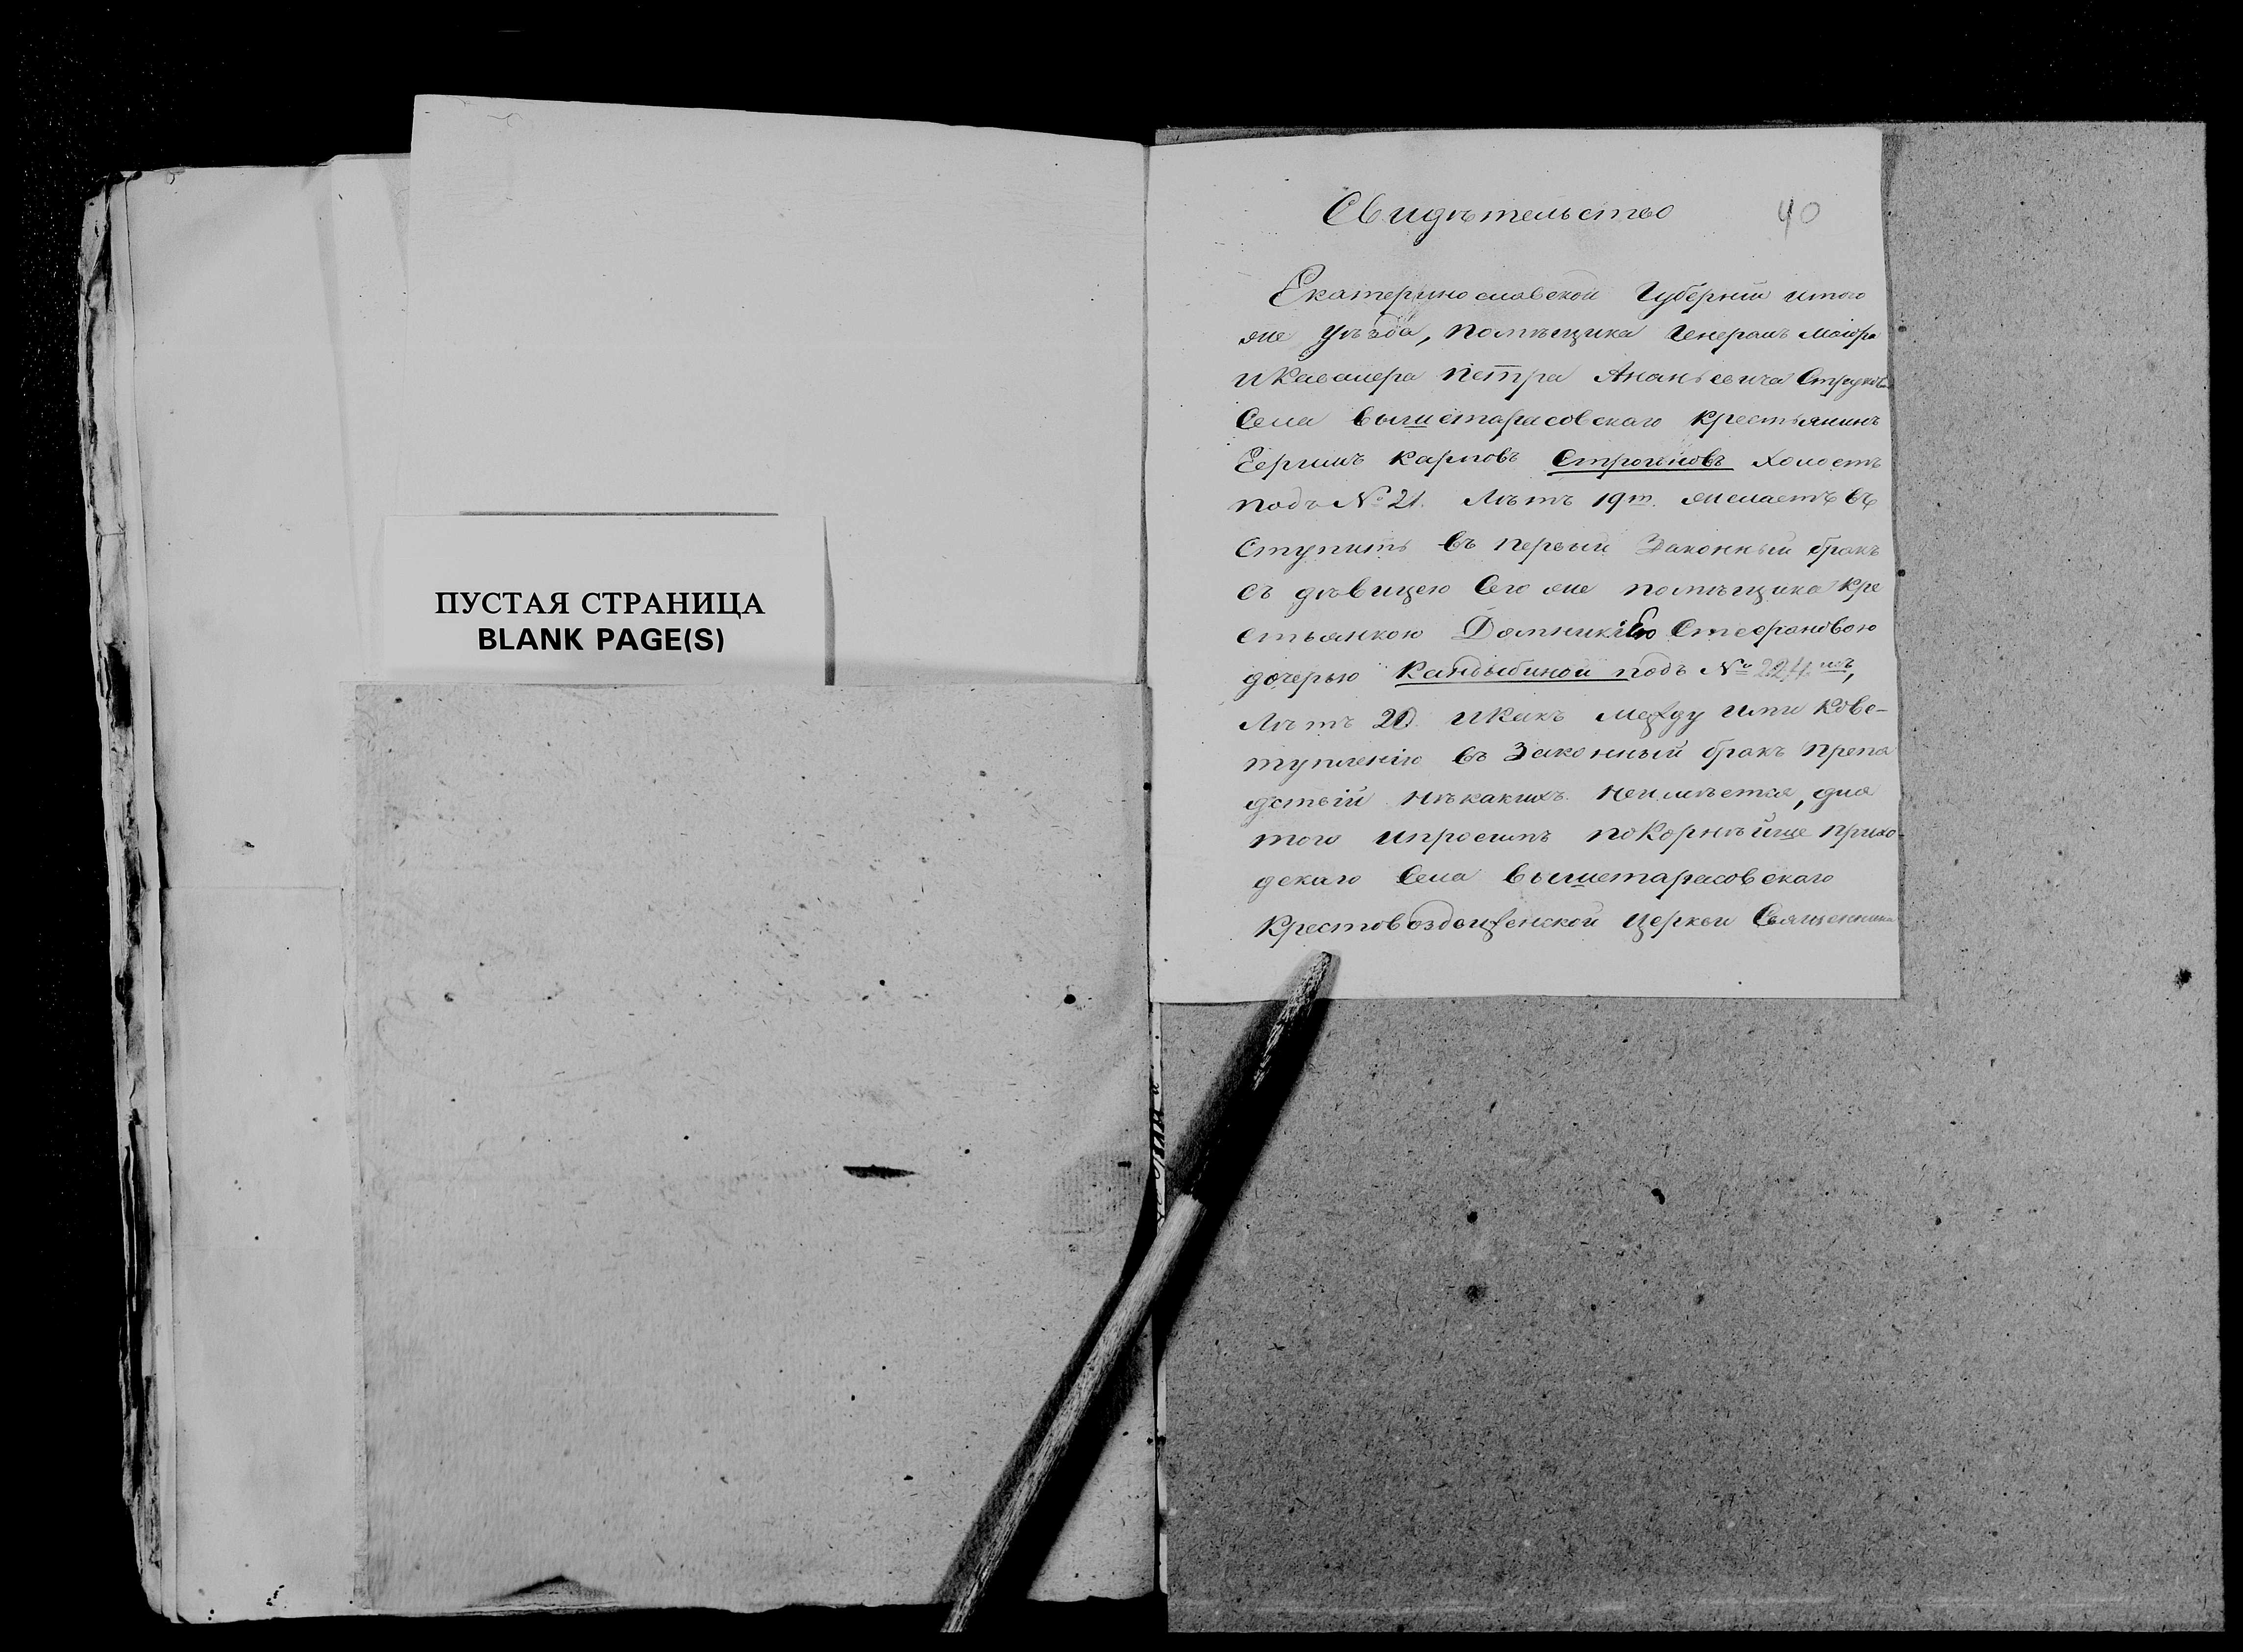 ПУСТАЯ СТРАНИЦА
BLANK PAGE(S)
Свидѣтельство 40
Екатеринославской Губерніи итого
же уѣзда, помѣщика Генералъ Маіора
икавалера Петра Ананьевича
Села вышетарасовскаго крестьянинъ
карповъ Строгоновъ холостъ
подъ № 21. Лѣтъ 19т. желаетъ въ
ступить въ первый Законный бракъ
съ дѣвицею Сего же помѣщика кре
стьянкою Домникіею Стефановою
дочерью Кандыбиной подъ № 224мъ,
Лѣтъ 20. икакъ между ими ковс-
тупленію въ Законный бракъ препя
дствій нѣкакихъ неимѣется, для
того ипросимъ покорнѣйще прихо-
дскаго Села вышетарасовскаго
Крестовоздвиженской церкви Священника